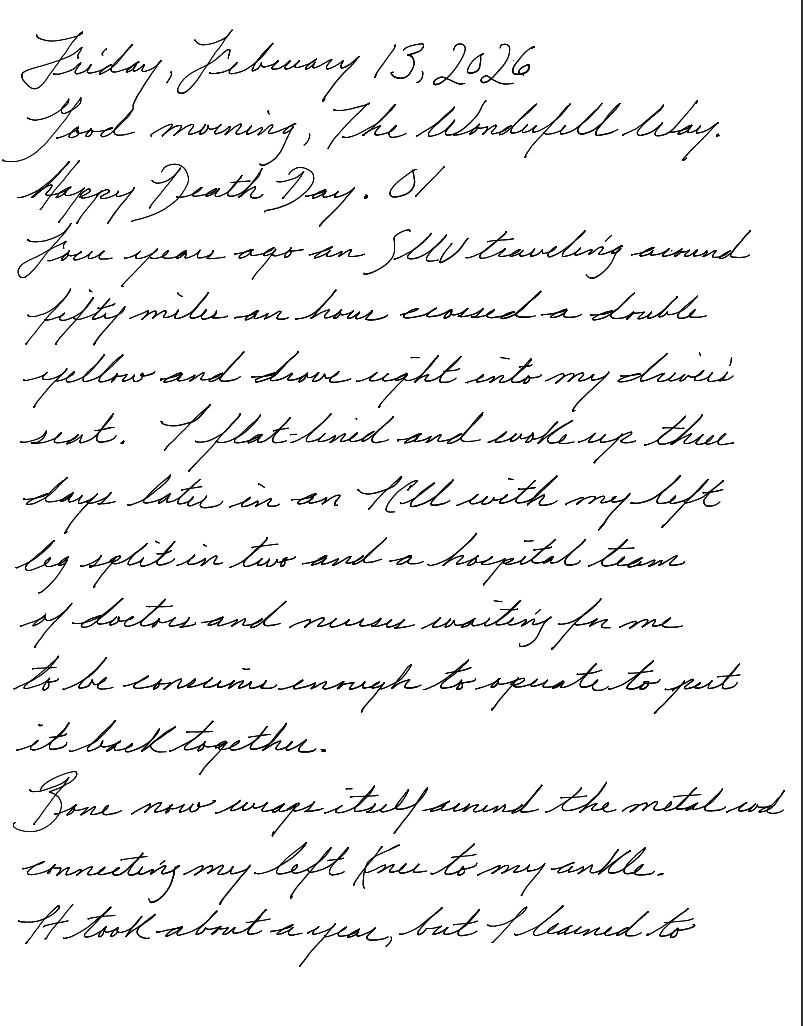 Friday, February 13, 2026
Good morning, The Wonderfull Way.
Happy Death Day. 01
Four years ago an SUV traveling around
fifty miles an hour crossed a double
yellow and drove right into my driver's
seat. I flat-lined and woke up three
days later in an ICU with my left
leg split in two and a hospital team
of doctors and nurses waiting for me
to be conscious enough to operate to put
it back together.
Bone now wraps itself around the metal rod
connecting my left knee to my ankle.
It took about a year, but I learned to